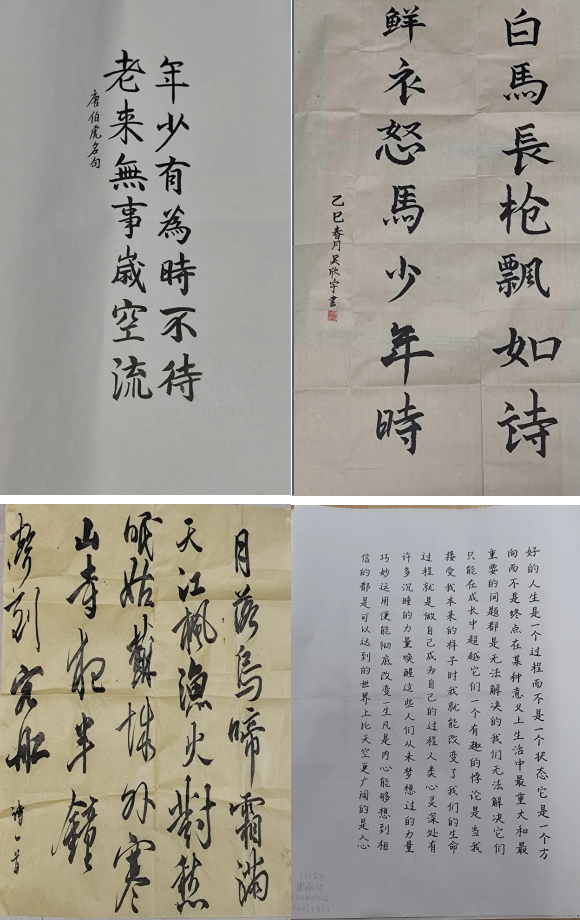 年少有為時不待
老来無事歲空流
唐伯虎名句
白馬長枪飘如诗
鮮衣怒馬少年時
乙巳春月吴欣宇書
月落烏啼霜滿
天江楓漁火對愁
眠姑蘇城外寒
山寺夜半鐘
聲到客船
好的人生是一个过程而不是一个状态它是一个方
向而不是终点在某种意义上生活中最重大和最
重要的问题都是无法解决的我们无法解决它们
只能在成长中超越它们一个有趣的悖论是当我
接受我本来的样子时我就能改变了我们的生命
过程就是做自己成为自己的过程人类心灵深处有
许多沉睡的力量唤醒这些人们从未梦想过的力量
巧妙运用便能彻底改变一生凡是内心能够想到相
信的都是可以达到的世界上比天空更广阔的是人心